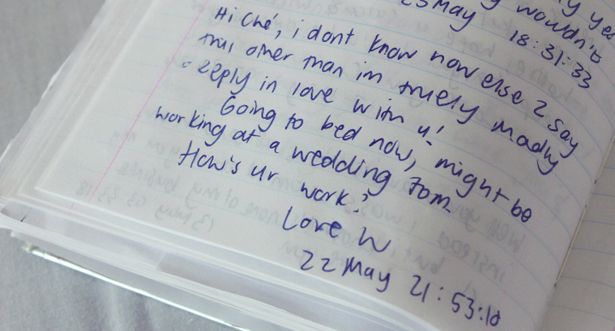 23 May 18:31:33
Hi Ché, i dont know how else 2 say
this other than im truely madly
deeply in love with u!
Going to bed now, might be
working at a wedding tom.
How's ur work?
Love W
22 May 21:53:18